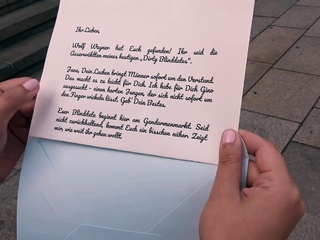 Ihr Lieben,
Wolf Wagner hat Euch gefunden! Ihr seid die
Auserwählten meines heutigen „Dirty Blinddates".
Jana, Dein Lachen bringt Männer sofort um den Verstand.
Das macht es zu leicht für Dich. Ich habe für Dich Gino
ausgesucht - einen harten Jungen, der sich nicht sofort um
den Finger wickeln lässt. Geb' Dein Bestes.
Euer Blinddate beginnt hier am Gendarmenmarkt. Seid
nicht zurückhaltend, kommt Euch ein bisschen näher. Zeigt
mir, wie weit ihr gehen wollt.